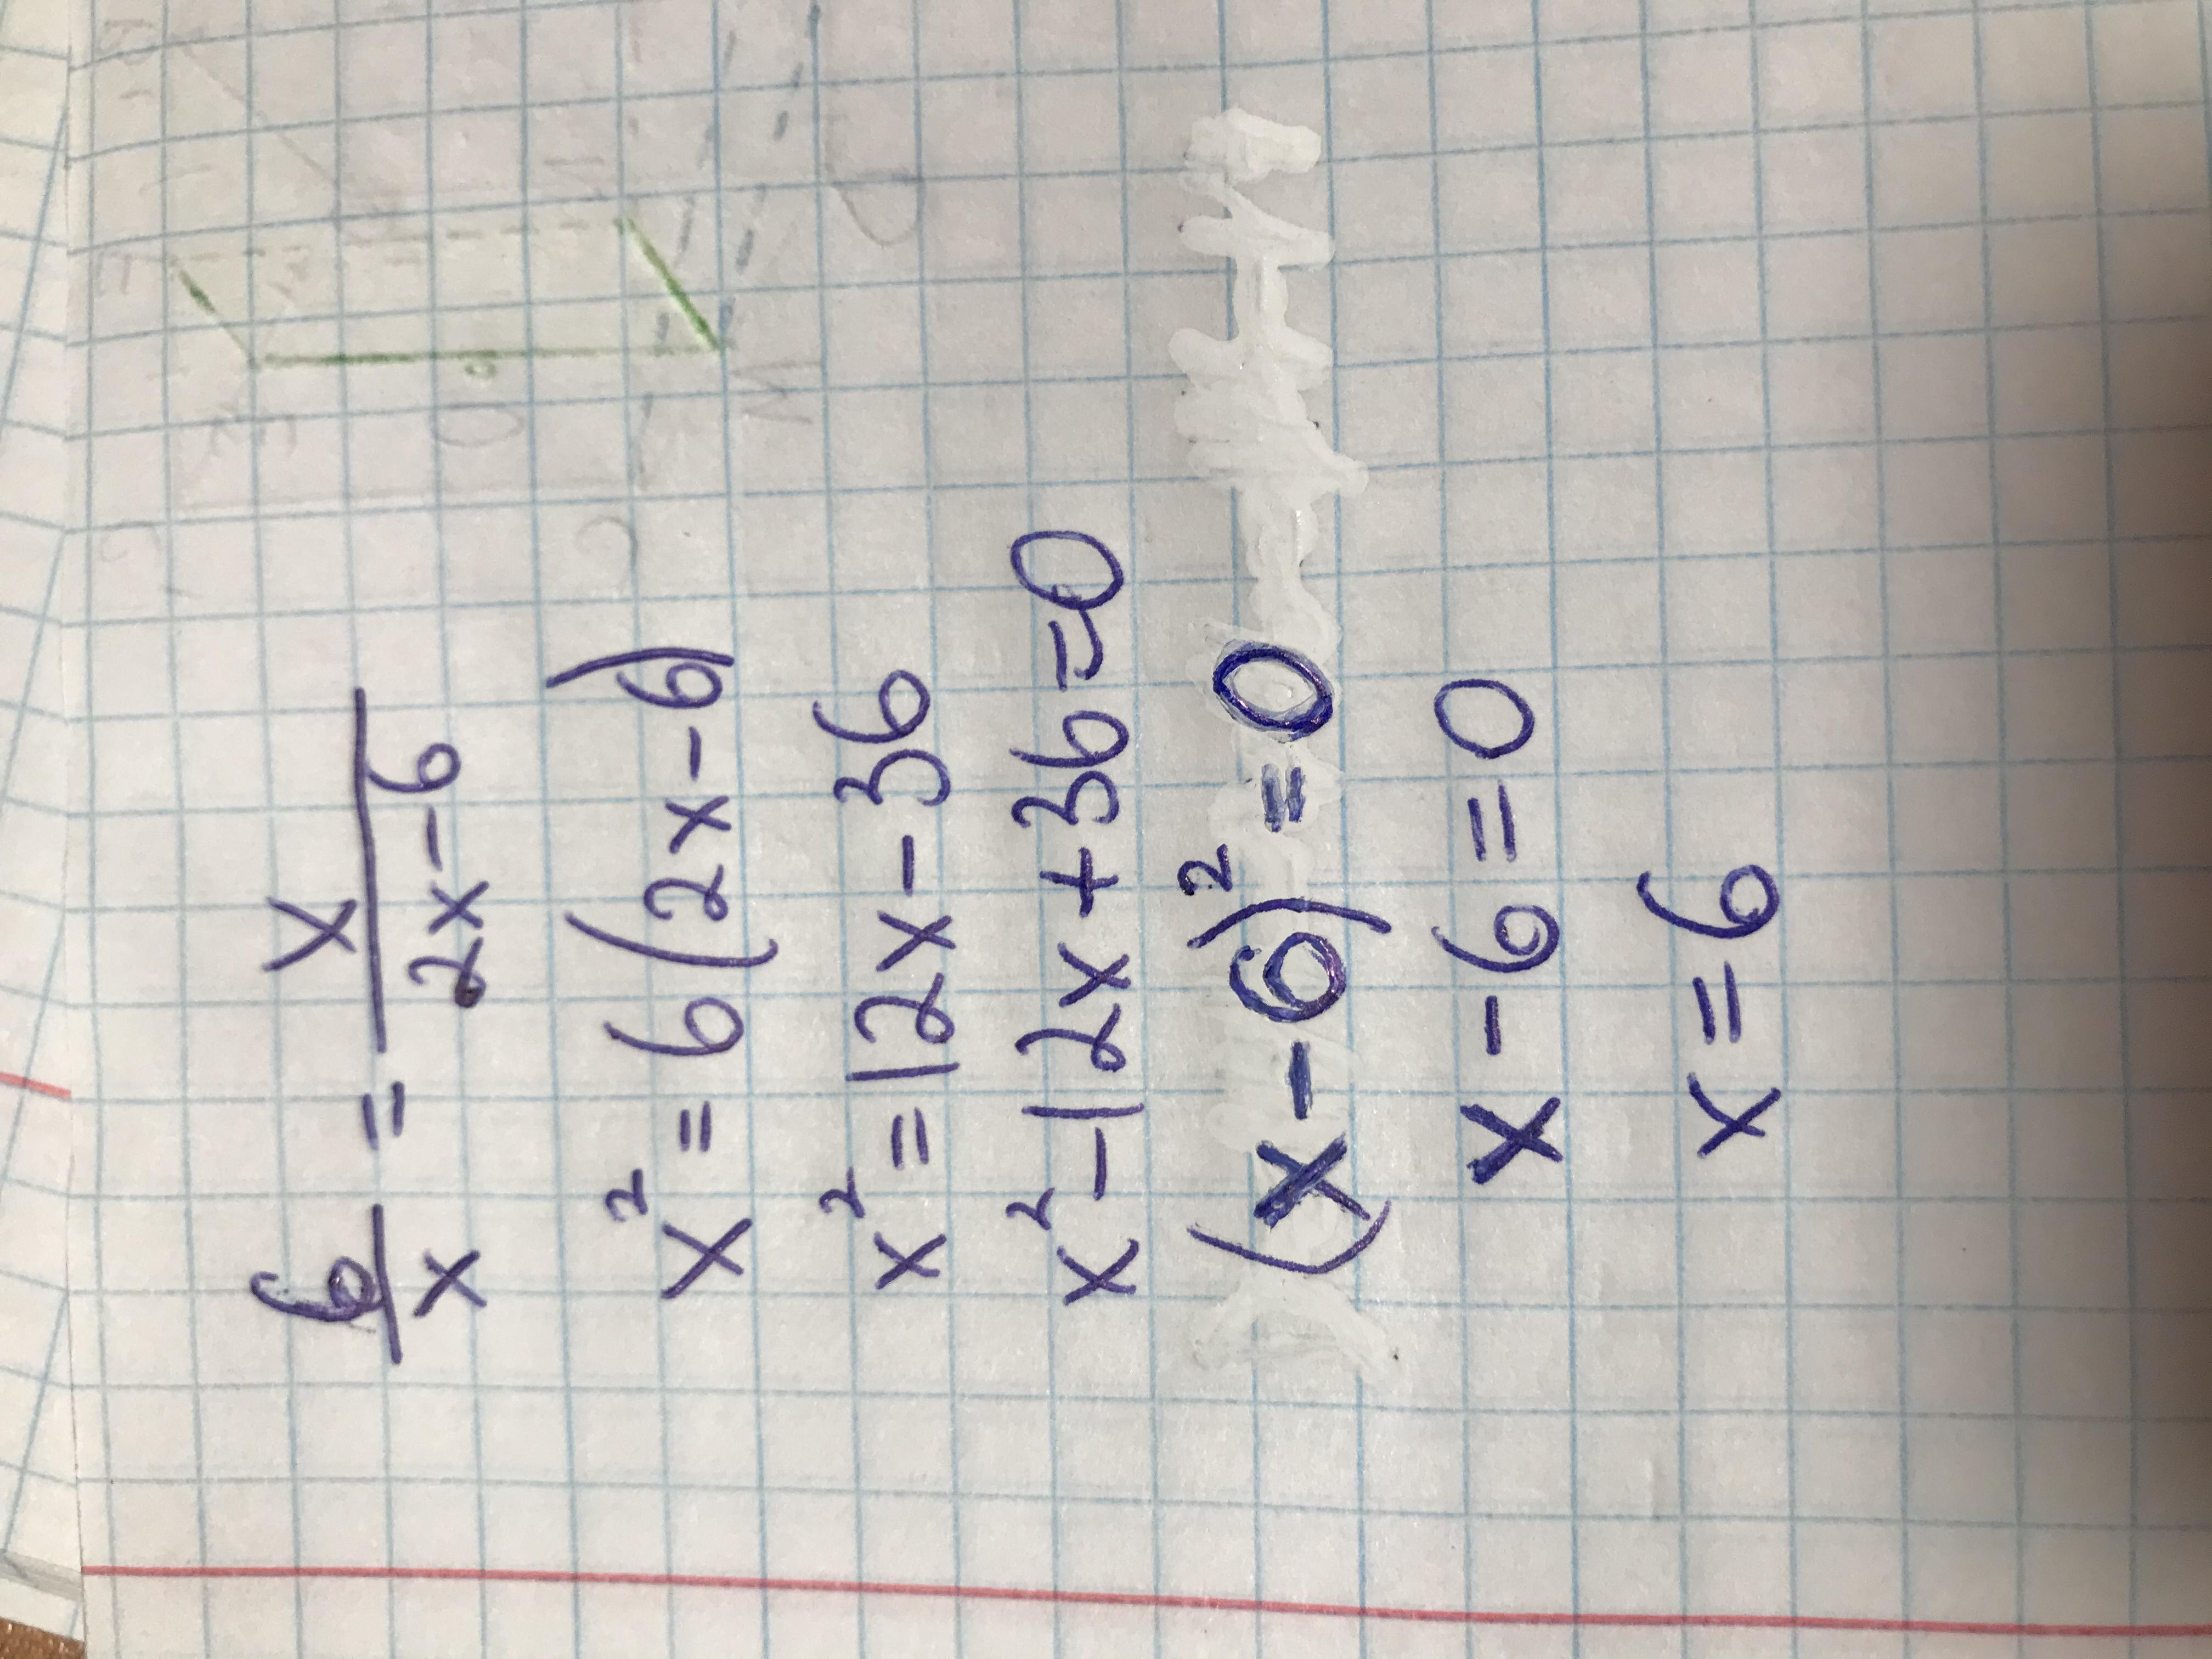 6/x = x/2x-6
x² = 6(2x-6)
x² = 12x-36
x²-12x+36=0
(x-6)² = 0
x-6=0
x=6